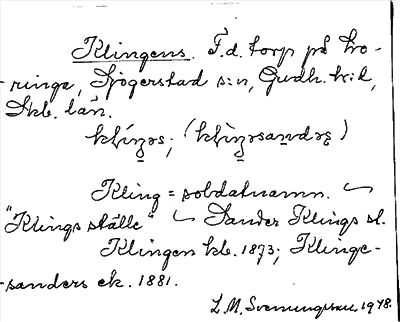 Klingens. F.d. torp på Bro-
-ringe, Sjögerstad s:n, Gudh. h:d,
Skb. län.
klíŋəs; (klìŋəsandəʂ)
Kling = soldatnamn.
"Klings ställe" Sander Klings st.
Klingen kb. 1873; Klinge-
-sanders ek. 1881.
L.M. Svenungsson. 1948.